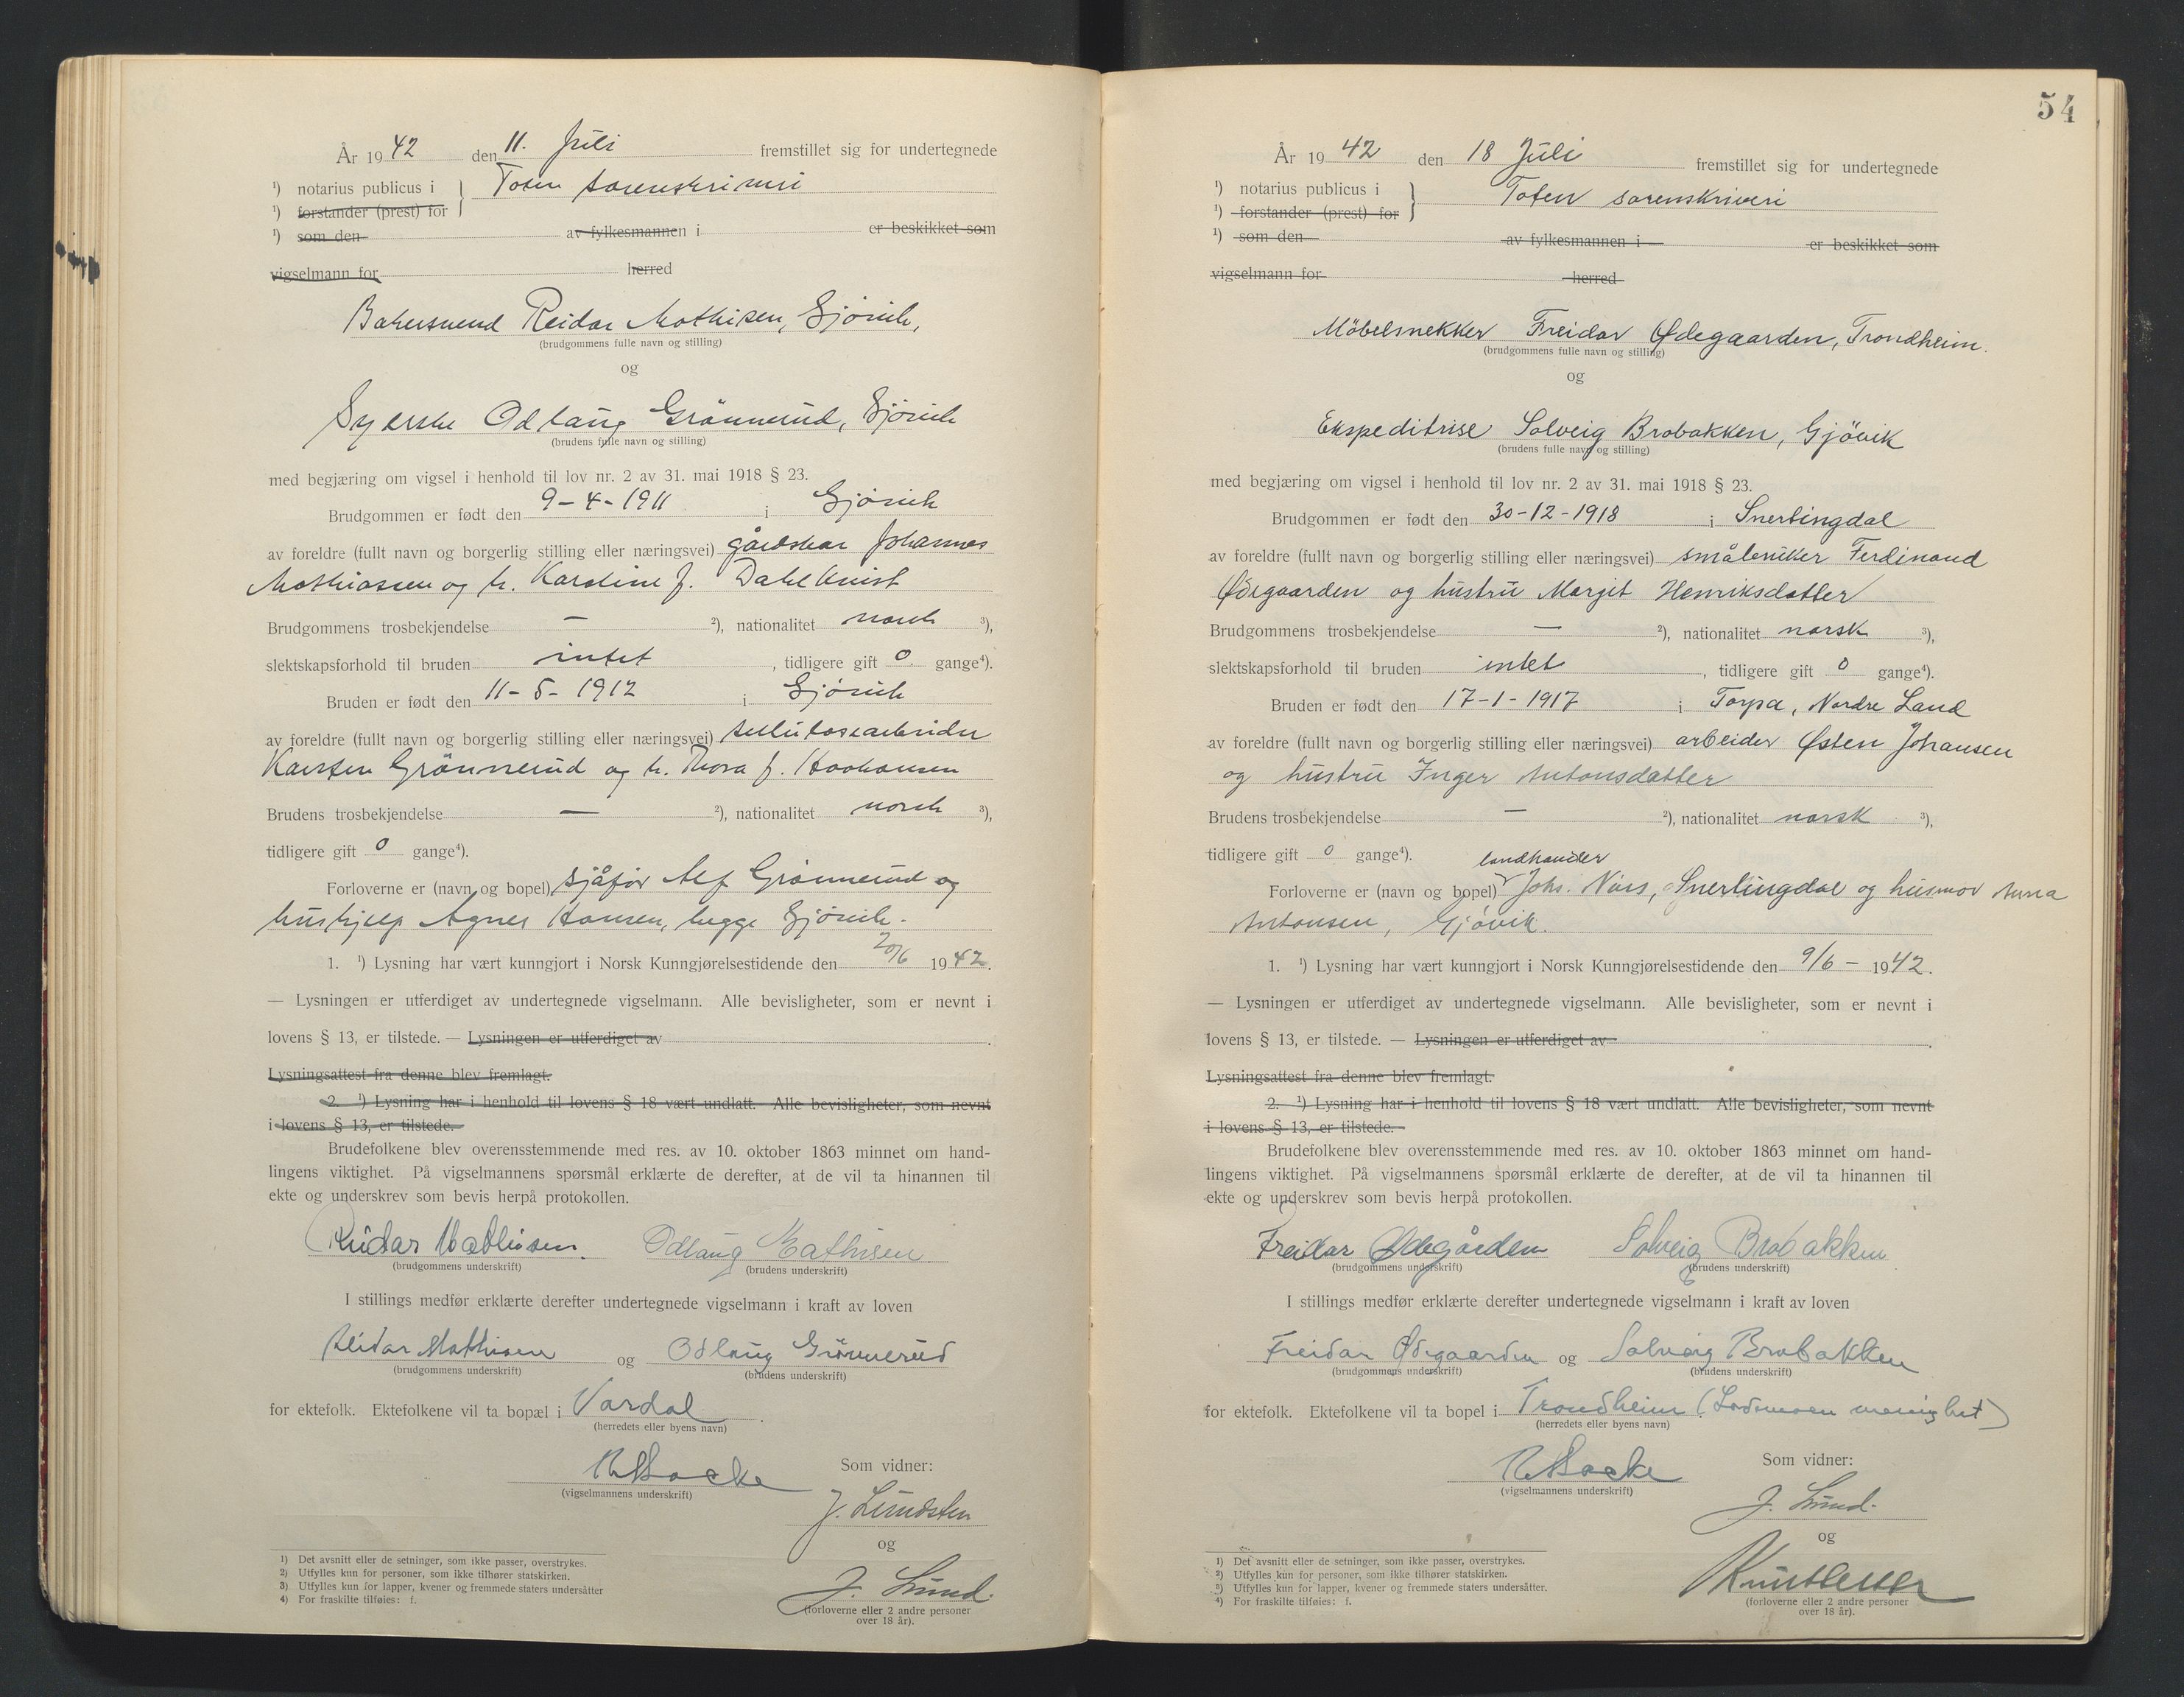 År 1942 den 11. Juli fremstillet sig for undertegnede
¹) notarius publicus i } Toten sorenskriveri
¹) forstander (prest) for
¹) som den av fylkesmannen i er beskikket som
vigselmann for herred
Bakersvend Reidar Mathisen, Gjövik,
(brudgommens fulle navn og stilling)
og
Syerske Odlaug Grönnerud, Gjövik
(brudens fulle navn og stilling)
med begjæring om vigsel i henhold til lov nr. 2 av 31. mai 1918 § 23.
Brudgommen er født den 9-4-1911 i Gjövik
av foreldre (fullt navn og borgerlig stilling eller næringsvei) gårdskar Johannes
Mathiassen og h. Karoline f. Dahlkvist
Brudgommens trosbekjendelse — ²), nationalitet norsk ³),
slektskapsforhold til bruden intet, tidligere gift 0 gange⁴).
Bruden er født den 11-5-1912 i Gjövik
av foreldre (fullt navn og borgerlig stilling eller næringsvei) cellulosearbeider
Karsten Grönnerud og h. Thora f. Haakonsen
Brudens trosbekjendelse — ²), nationalitet norsk ³),
tidligere gift 0 gange⁴).
Forloverne er (navn og bopel) sjåfør Alf Grönnerud og
hushjelp Agnes Hansen, begge Gjövik.
1. ¹) Lysning har vært kunngjort i Norsk Kunngjørelsestidende den 20/6 1942.
— Lysningen er utferdiget av undertegnede vigselmann. Alle bevisligheter, som er nevnt i
lovens § 13, er tilstede. — Lysningen er utferdiget av .
Lysningsattest fra denne blev fremlagt.
2. ¹) Lysning har i henhold til lovens § 18 vært undlatt. Alle bevisligheter, som nevnt
i lovens § 13, er tilstede.
Brudefolkene blev overensstemmende med res. av 10. oktober 1863 minnet om hand-
lingens viktighet. På vigselmannens spørsmål erklærte de derefter, at de vil ta hinannen til
ekte og underskrev som bevis herpå protokollen.
Reidar Mathisen. Odlaug Mathisen
(brudgommens underskrift) (brudens underskrift)
I stillings medfør erklærte derefter undertegnede vigselmann i kraft av loven
Reidar Mathisen og Odlaug Grönnerud
(brudgommens underskrift) (brudens underskrift)
for ektefolk. Ektefolkene vil ta bopæl i Vardal .
(herredets eller byens navn)
Som vidner:
(vigselmannens underskrift)
J. Lundsten
og
J. Lund.
(forloverne eller 2 andre personer
over 18 år).
1) Det avsnitt eller de setninger, som ikke passer, overstrykes.
2) Utfylles kun for personer, som ikke tilhører statskirken.
3) Utfylles kun for lapper, kvener og fremmede staters undersåtter
4) For fraskilte tilføies: f.
54
År 1942 den 18 Juli fremstillet sig for undertegnede
¹) notarius publicus i } Toten sorenskriveri
¹) forstander (prest) for
¹) som den av fylkesmannen i er beskikket som
vigselmann for herred
Möbelsnekker Freidar Ødegaarden, Trondheim.
(brudgommens fulle navn og stilling)
og
Ekspeditrise Solveig Brobakken, Gjövik
(brudens fulle navn og stilling)
med begjæring om vigsel i henhold til lov nr. 2 av 31. mai 1918 § 23.
Brudgommen er født den 30-12-1918 i Snertingdal
av foreldre (fullt navn og borgerlig stilling eller næringsvei) småbruker Ferdinand
Ødegaarden og hustru Margit Henriksdatter
Brudgommens trosbekjendelse — ²), nationalitet norsk ³),
slektskapsforhold til bruden intet, tidligere gift 0 gange⁴).
Bruden er født den 17-1-1917 i Torpa, Nordre Land
av foreldre (fullt navn og borgerlig stilling eller næringsvei) arbeider Østen Johansen
og hustru Inger Antonsdatter
Brudens trosbekjendelse — ²), nationalitet norsk ³),
tidligere gift 0 gange⁴).
landhandler
Forloverne er (navn og bopel) Johs. Snertingdal og husmor Anna
Antonsen, Gjövik.
1. ¹) Lysning har vært kunngjort i Norsk Kunngjørelsestidende den 9/6 — 1942.
— Lysningen er utferdiget av undertegnede vigselmann. Alle bevisligheter, som er nevnt i
lovens § 13, er tilstede. — Lysningen er utferdiget av .
Lysningsattest fra denne blev fremlagt.
2. ¹) Lysning har i henhold til lovens § 18 vært undlatt. Alle bevisligheter, som nevnt
i lovens § 13, er tilstede.
Brudefolkene blev overensstemmende med res. av 10. oktober 1863 minnet om hand-
lingens viktighet. På vigselmannens spørsmål erklærte de derefter, at de vil ta hinannen til
ekte og underskrev som bevis herpå protokollen.
Freidar Ødegården Solveig Brobakken
(brudgommens underskrift) (brudens underskrift)
I stillings medfør erklærte derefter undertegnede vigselmann i kraft av loven
Freidar Ødegaarden og Solveig Brobakken
(brudgommens underskrift) (brudens underskrift)
for ektefolk. Ektefolkene vil ta bopel i Trondheim (Lademoen menighet)
(herredets eller byens navn)
Som vidner:
(vigselmannens underskrift)
J. Lund.
og
(forloverne eller 2 andre personer
over 18 år).
1) Det avsnitt eller de setninger, som ikke passer, overstrykes.
2) Utfylles kun for personer, som ikke tilhører statskirken.
3) Utfylles kun for lapper, kvener og fremmede staters undersåtter.
4) For fraskilte tilføies: f.